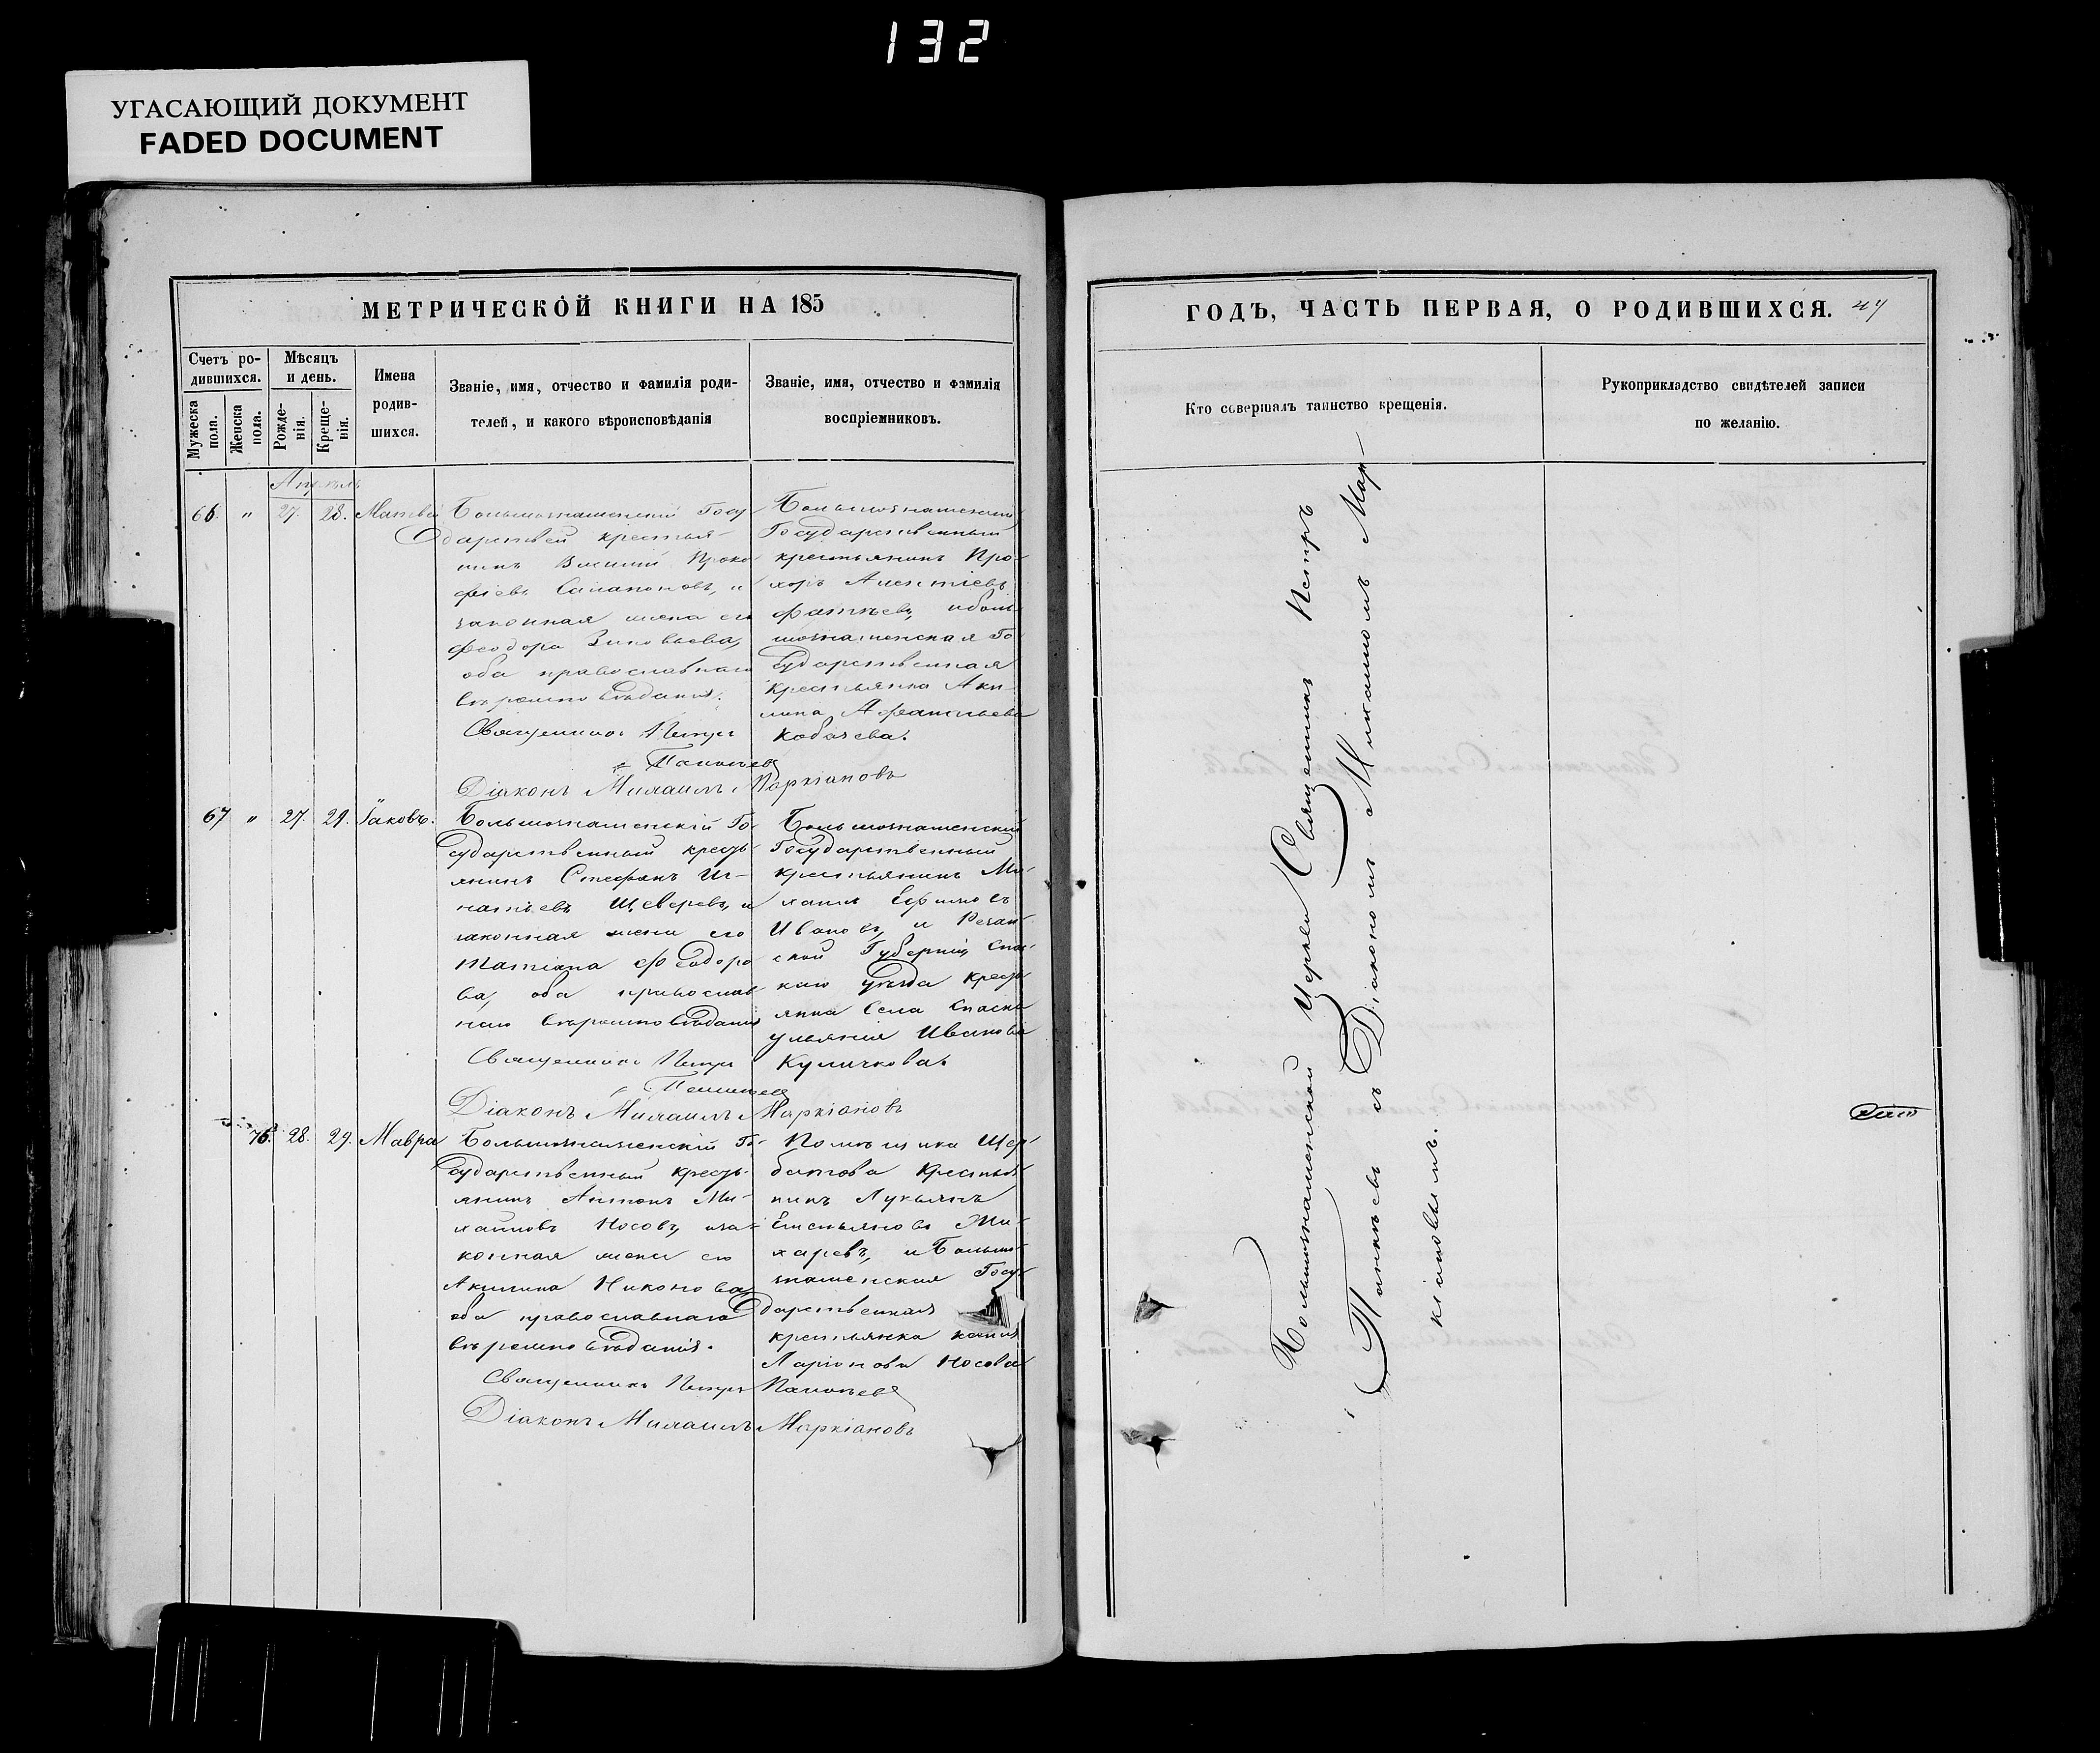 132
УГАСАЮЩИЙ ДОКУМЕНТ
FADED DOCUMENT
МЕТРИЧЕСКОЙ КНИГИ НА 185
Счетъ ро-
дившихся.
Мужеска пола.
Женска пола.
Мѣсяцъ
и день.
Рожде-
нія.
Креще-
нія.
Имена
родив-
шихся.
Званіе, имя, отчество и фамилія роди-
телей, и какого вѣроисповѣданія
Званіе, имя, отчество и фамилія
воспріемниковъ.
Апрѣль
66. " 27. 28. Матвей
Большознаменскій Госу-
дарствен крестья-
нинъ Василій Проко-
фіевъ Сапапоновъ, и
законная жена его
Феодора Зиновьева,
оба православнаго
вѣроисповѣданія.
Священникъ Петръ
Діаконъ Михаилъ Маркіановъ
Большознаменскій
Государственный
крестьянинъ Про-
хоръ
и Боль-
шознаменская Го-
сударственная
крестьянка Аки-
лина
Кобачева.
67 " 27. 29. Іаковъ.
Большознаменскій Го-
сударственный кресть-
янинъ Стефанъ Иг-
натьевъ Щеверевъ, и
законная жена его
Татіана Феодоро-
ва, оба православ-
наго вѣроисповѣданія
Священникъ Петръ
Діаконъ Михаилъ Маркіановъ
Большознаменскій
Государственный
крестьянинъ Ми-
хаилъ Ефимовъ
Ивановъ, и Резан-
ской Губерніи, Спас-
каго уѣзда кресть-
янка Села Спаска
Ульянія Иванова
Куличкова.
76. 28. 29. Мавра
Большознаменскій Го-
сударственный кресть-
янинъ Антонъ Ми-
хаиловъ Носовъ, и за-
конная жена его
Акилина Никонова,
оба православнаго
вѣроисповѣданія.
Священникъ Петръ
Діаконъ Михаилъ Маркіановъ
Помѣщика Щер-
батова Крестья-
нинъ Лукьянъ
Емельяновъ Жи-
харевъ, и Больше-
знаменская Госу-
дарственная
крестьянка
Ларіонова Носова
ГОДЪ, ЧАСТЬ ПЕРВАЯ, О РОДИВШИХСЯ. 44
Кто совершалъ таинство крещенія.
Рукоприкладство свидѣтелей записи
по желанію.
Большознаменской Церкви Священникъ Петръ
съ Діакономъ Михаиломъ Мар-
кіановымъ.